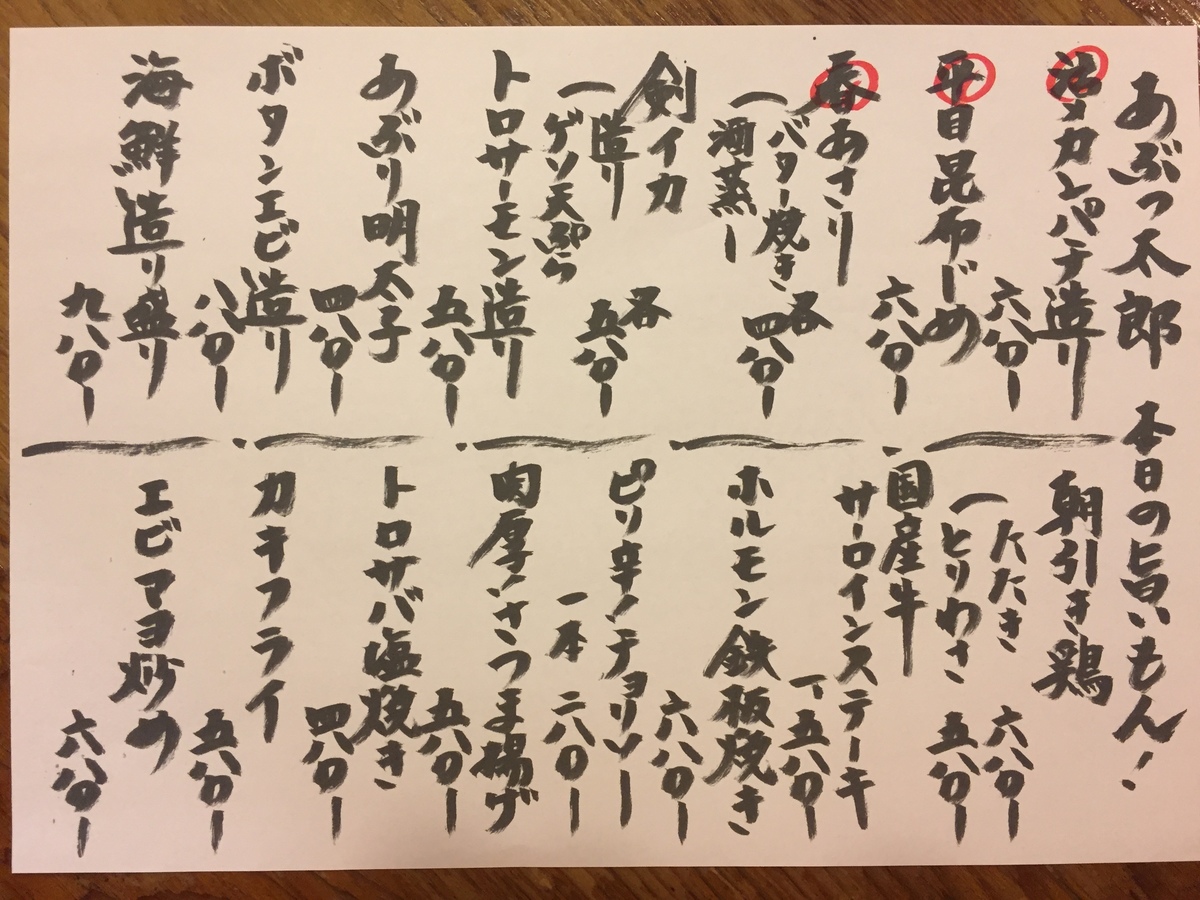 あぶつ太郎 本日の旨いもん！
活〆カンパチ造り
六八〇ー
平目昆布じめ
六八〇ー
春あさり
バター焼き
酒蒸し
各
四八〇ー
剣イカ
造り
ゲソ天ぷら
各
五八〇ー
トロサーモン造り
五八〇ー
あぶり明太子
四八〇ー
ボタンエビ造り
八八〇ー
海鮮造り盛り
九八〇ー
朝引き鶏
たたき
六八〇ー
とりわさ
五八〇ー
国産牛
サーロインステーキ
一五八〇ー
ホルモン鉄板焼き
六八〇ー
ピリ辛チョリソー
一本 二八〇ー
肉厚さつま揚げ
五八〇ー
トロサバ塩焼き
四八〇ー
カキフライ
五八〇ー
エビマヨ炒め
六八〇ー